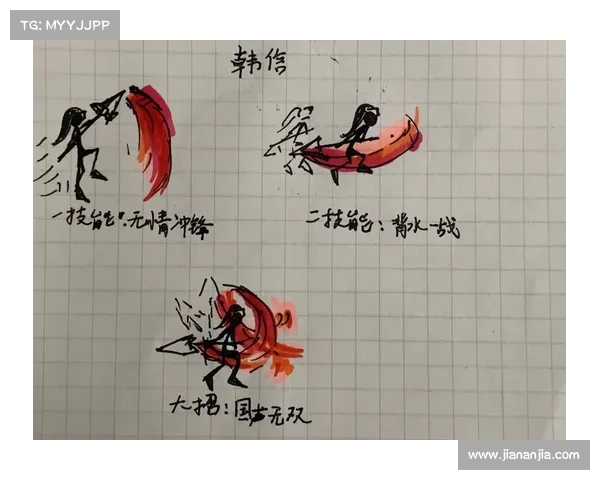 TG: MYYJJPP
韩信
一技能:无情冲锋
二技能:背水一战
大招:国士无双
www.jiananjia.com